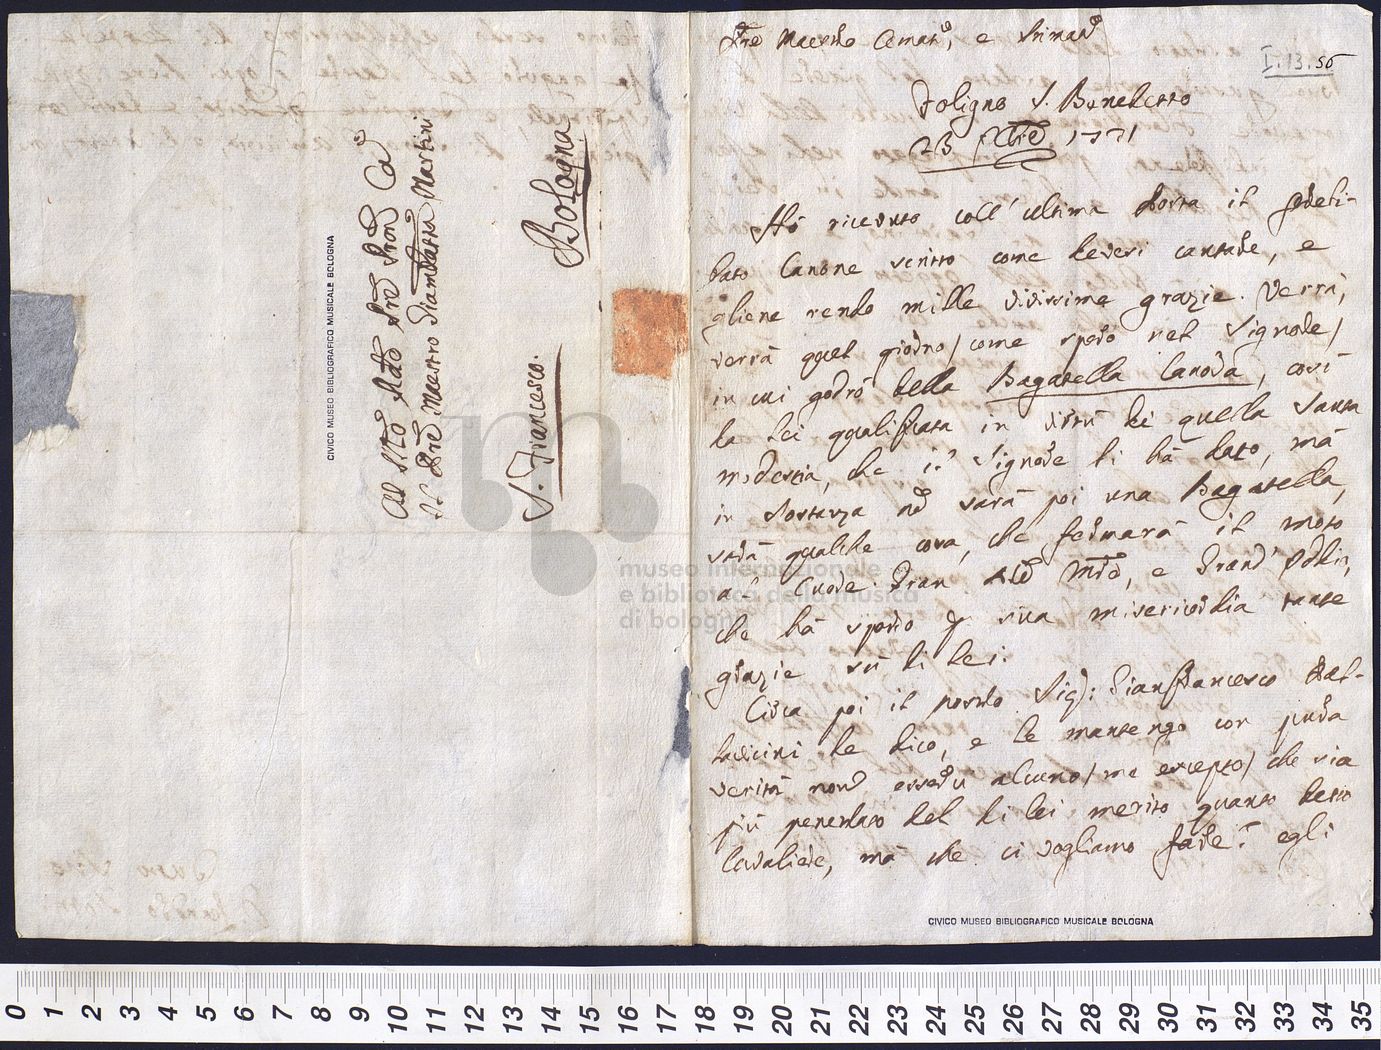 Al Mto Rdo Pre Pron Co
Il Pre Maestro Giambatta Martini
Bologna
S. Francesco.
CIVICO MUSEO BIBLIOGRAFICO MUSICALE BOLOGNA
Pre Maestro Amatmo, e Stimatmo
I.13.56
Foligno S. Benedetto
23 1771
Hò ricevuto coll'ultima Posta il
Canone scritto come devesi cantare, e
gliene rendo mille vivissime grazie. Verrà,
verrà quel giorno/come spero nel Signore/
in cui godrò della Bagatella Canora, così
da Lei qualificata in virtù di quella Santa
modestia, che il Signore li hà dato, mà
in sostanza non sarà poi una Bagatella,
sarà qualche cosa, che fermarà il moto
al Cuore. Gran e Grand'Iddio,
che hà sparso p sua misericordia tante
grazie sù di Lei.
Circa poi il Sig: Gianfrancesco Bal-
dacini le dico, e le mantengo con pura
verità non esservi alcuno/me excepto/che sia
più penetrato del di lei merito quanto detto
Cavaliere, mà che ci vogliamo fare? egli
museo internazionale
e biblioteca della musica
di bologna
CIVICO MUSEO BIBLIOGRAFICO MUSICALE BOLOGNA
0 1 2 3 4 5 6 7 8 9 10 11 12 13 14 15 16 17 18 19 20 21 22 23 24 25 26 27 28 29 30 31 32 33 34 35